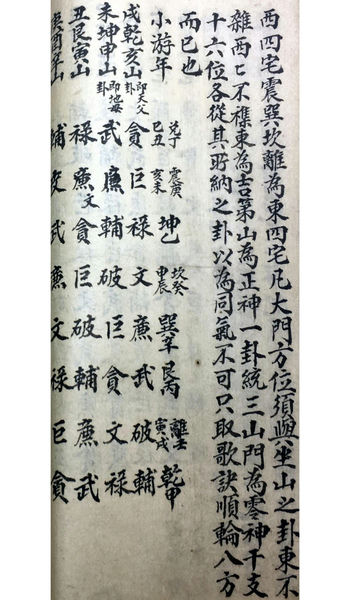 西四宅震巽坎離為東四宅凡大門方位須與坐山之卦東不
雜西匕不襍東為吉第山為正神一卦統三山門為零神干支
十六位各從其所納之卦以為同氣不可只取歌訣順輪八方
而已也
小游年 兌丁巳丑 震庚亥未 坤乙 坎癸申辰 巽辛 艮丙 離壬寅戌 乾甲
戌乾亥山卦即天父 貪 巨 祿 文 廉 武 破 輔
未坤申山卦即地母 武 廉 輔 破 巨 貪 文 祿
丑艮寅山 祿 廉文 貪 巨 破 輔 廉 武
庚酉辛山 輔 武 廉 文 祿 巨 貪